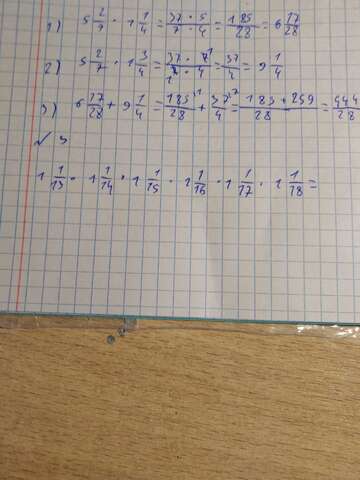 1) 5 2/7 · 1 1/4 = 37 · 5 / 7 · 4 = 185/28 = 6 17/28
2) 5 2/7 · 1 3/4 = 37 · 7 1 / 1 7 · 4 = 37/4 = 9 1/4
3) 6 17/28 + 9 1/4 = 185/28 + 37/4 = 185 + 259 / 28 = 444/28
√ 5
1 1/13 · 1 1/14 · 1 1/15 · 1 1/16 · 1 1/17 · 1 1/18 =